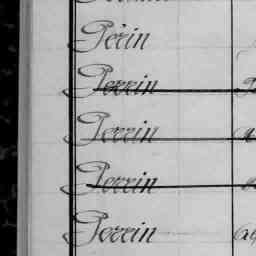 Perin
Perrin
Perrin
Perrin
Perrin